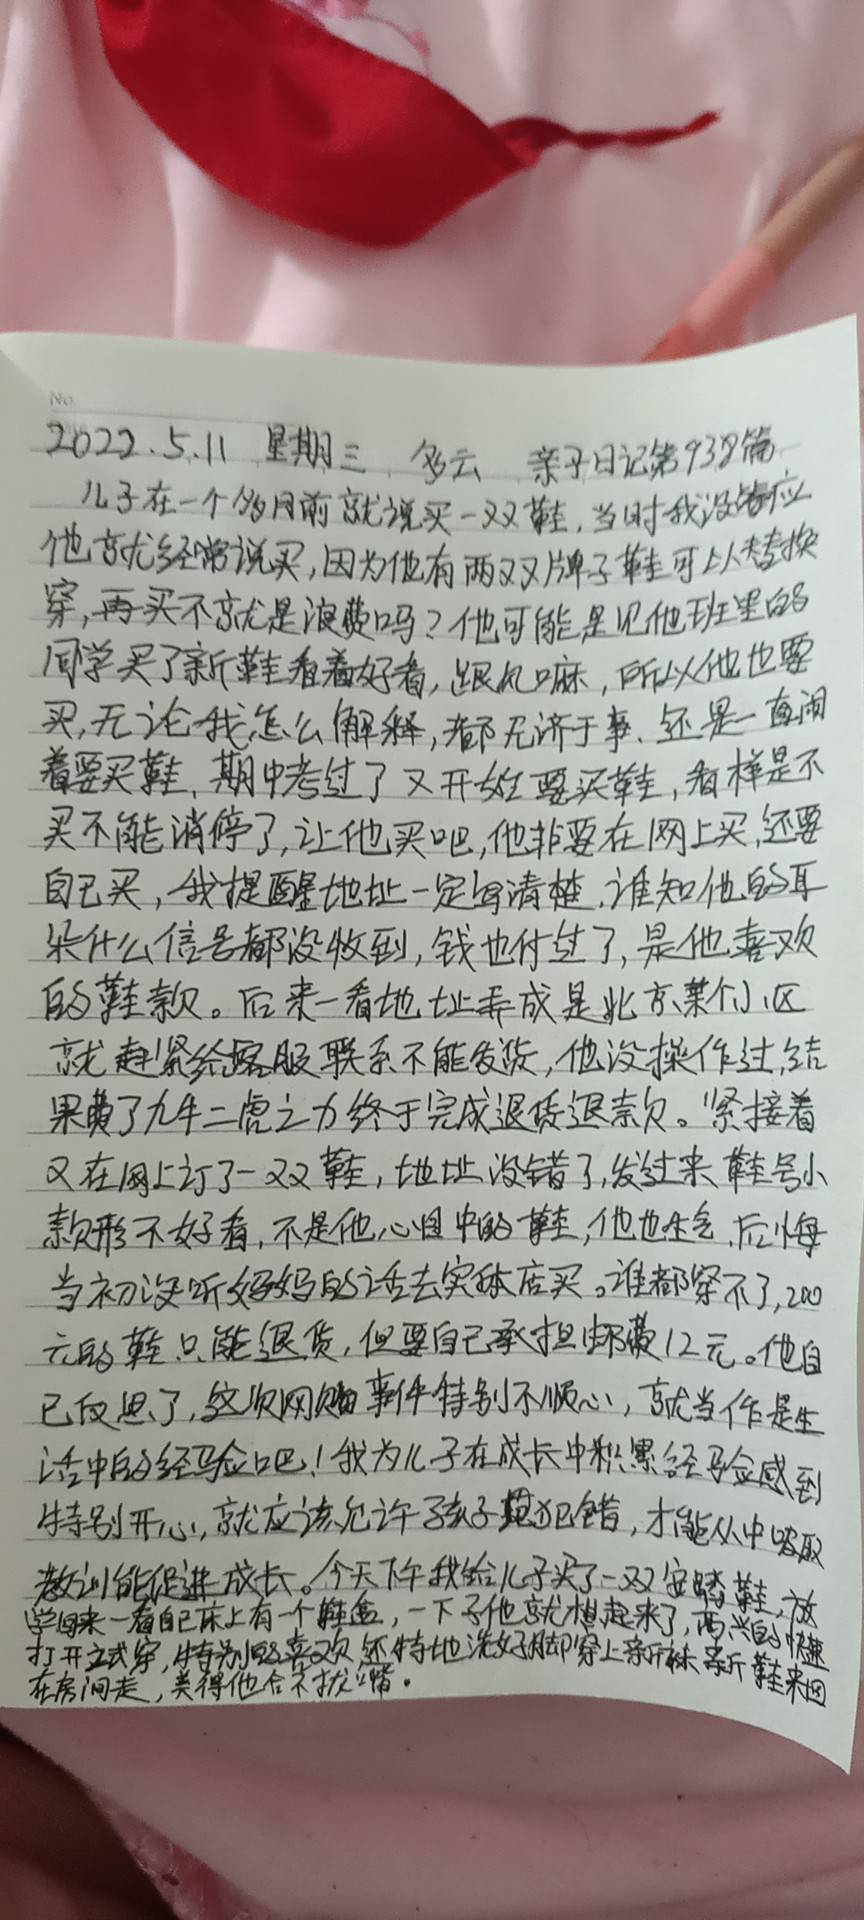 No.
2022.5.11 星期三 多云 亲子日记第938篇
儿子在一个多月前就说买一双鞋,当时我没答应
他就经常说买,因为他有两双牌子鞋可以替换
穿,再买不就是浪费吗?他可能是见他班里的
同学买了新鞋看着好看,跟风嘛,所以他也要
买,无论我怎么解释,都无济于事、还是一直闹
着要买鞋、期中考过了又开始要买鞋,看样是不
买不能消停了,让他买吧,他非要在网上买,还要
自己买,我提醒地址一定写清楚、谁知他的耳
朵什么信号都没收到,钱也付过了,是他喜欢
的鞋款。后来一看地址弄成是北京某个小区
就赶紧给客服联系不能发货,他没操作过,结
果费了九牛二虎之力终于完成退货退款。紧接着
又在网上订了一双鞋,地址没错了,发过来鞋号小
款形不好看,不是他心目中的鞋,他也生气,后悔
当初没听妈妈的话去实体店买。谁都穿不了,200
元的鞋只能退货,但要自己承担邮费12元。他自
己反思了,这次网购事件特别不顺心,就当作是生
活中的经验吧!我为儿子在成长中积累经验感到
特别开心,就应该允许孩子犯错,才能从中吸取
教训能促进成长。今天下午我给儿子买了一双安踏鞋,放
学回来一看自己床上有一个鞋盒,一下子他就想起来了,高兴的快速
打开立式穿,特别的喜欢,还特地洗好脚穿上新袜新鞋来回
在房间走,美得他合不拢嘴。